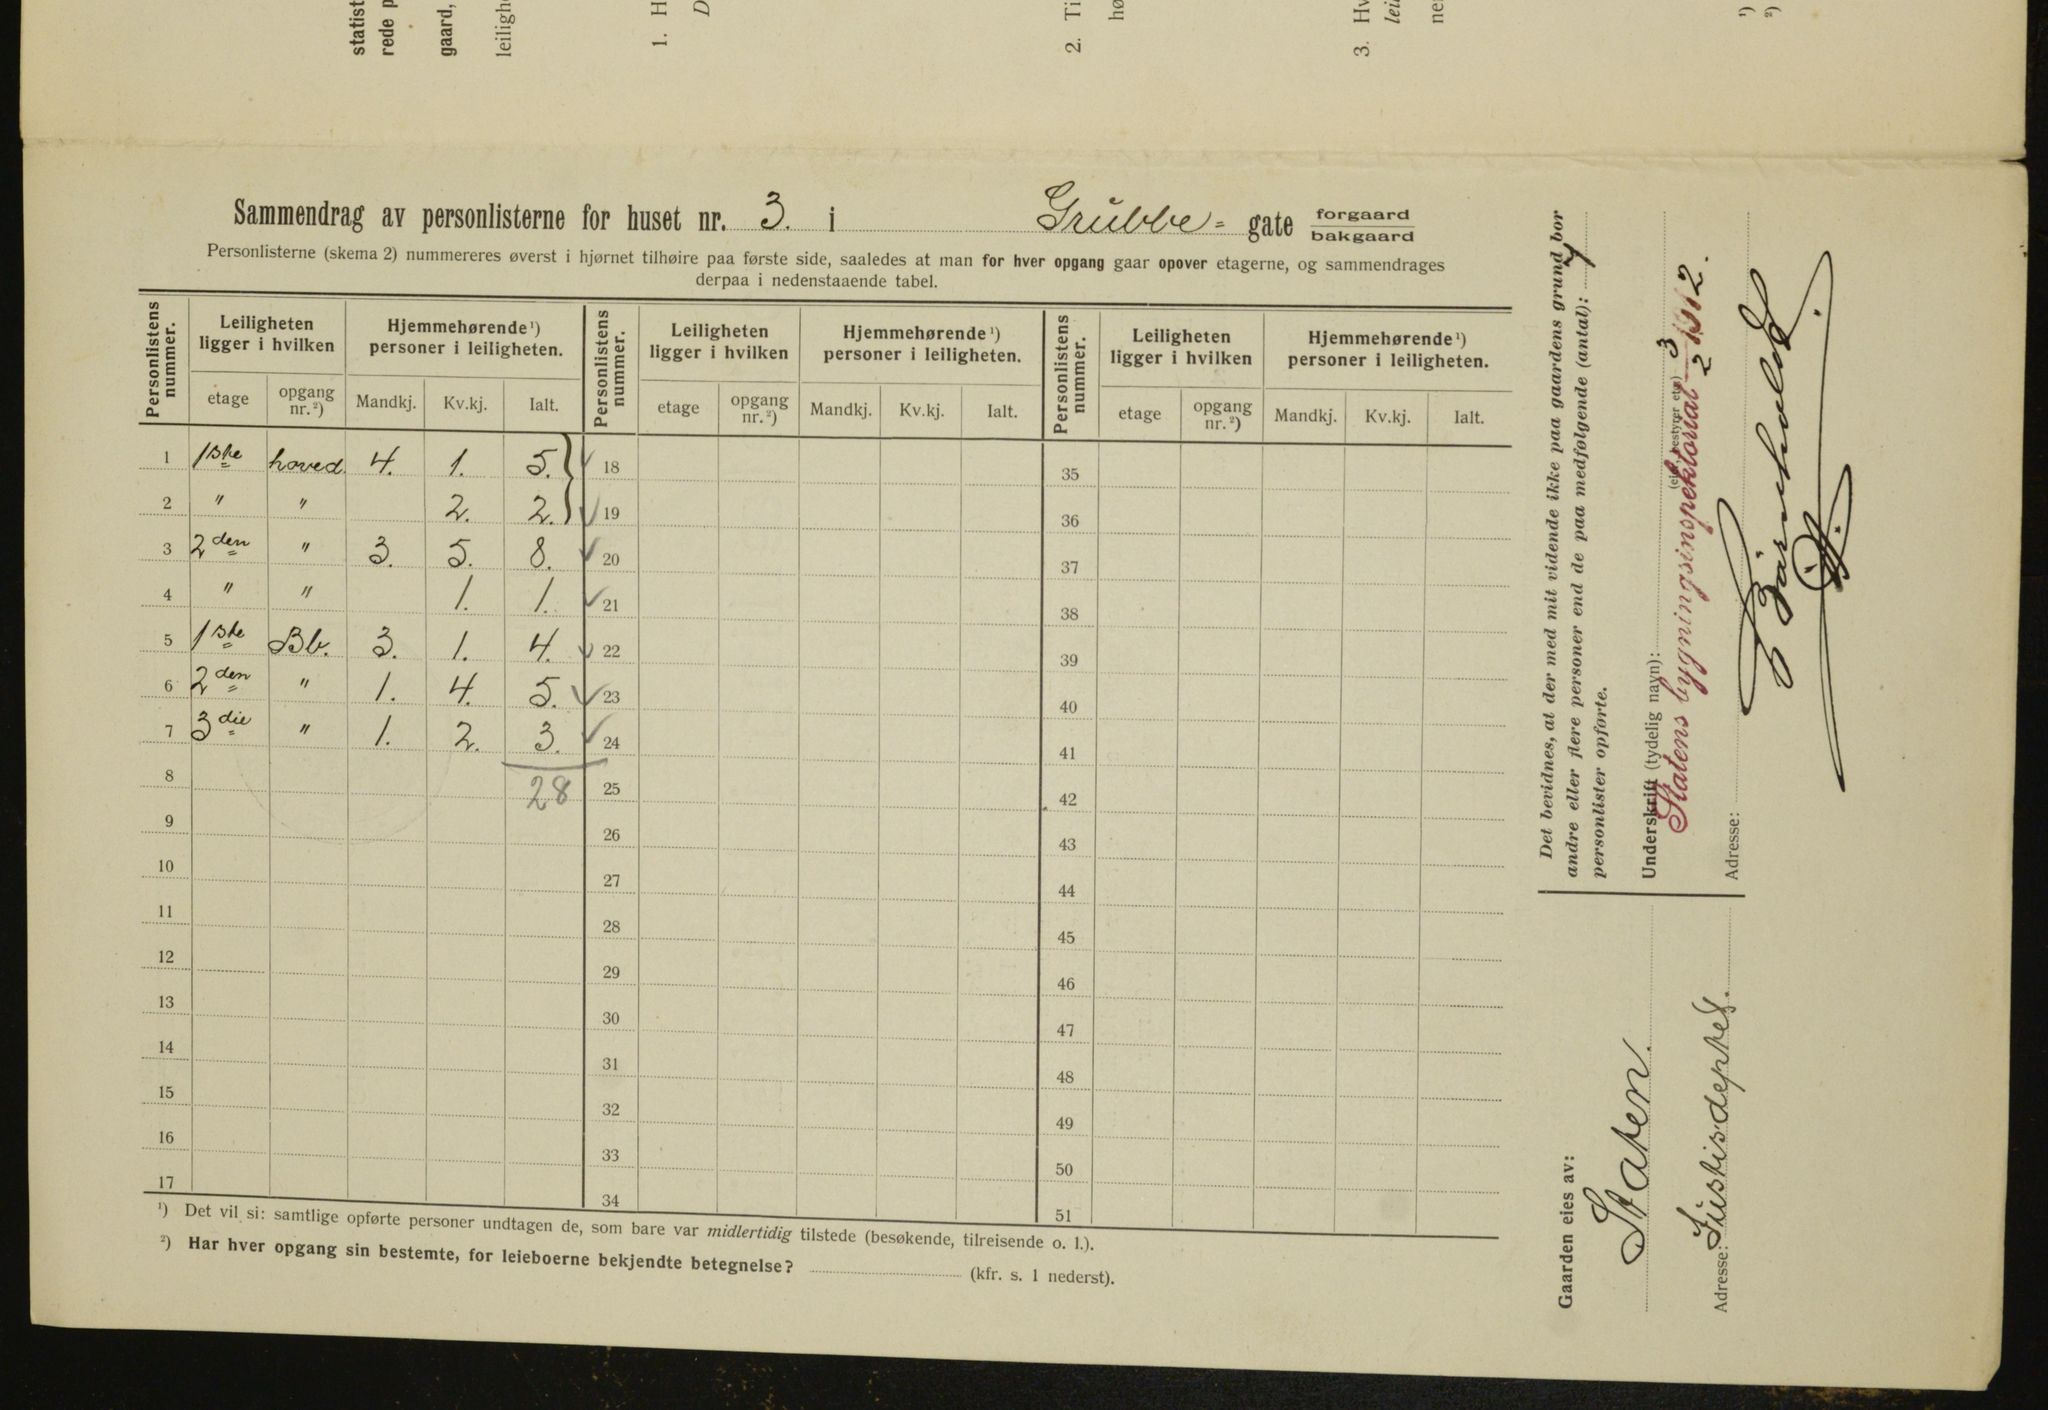 statist
rede p
gaard,
leiligh
1. H
D
2. Ti
hø
3. Hv
lei
ne
¹)
²)
Sammendrag av personlisterne for huset nr. 3. i Grubbe- gate forgaard
bakgaard
Personlisterne (skema 2) nummereres øverst i hjørnet tilhøire paa første side, saaledes at man for hver opgang gaar opover etagerne, og sammendrages
derpaa i nedenstaaende tabel.
Personlistens nummer. Leiligheten ligger i hvilken Hjemmehørende¹) personer i leiligheten. Personlistens nummer. Leiligheten ligger i hvilken Hjemmehørende¹) personer i leiligheten. Personlistens nummer. Leiligheten ligger i hvilken Hjemmehørende¹) personer i leiligheten.
etage opgang nr.²) Mandkj. Kv.kj. Ialt. etage opgang nr.²) Mandkj. Kv.kj. Ialt. etage opgang nr.²) Mandkj. Kv.kj. Ialt.
1 1ste hoved 4. 1. 5. 18 35
2 " " 2. 2. 19 36
3 2den " 3. 5. 8. 20 37
4 " " 1. 1. 21 38
5 1ste Bb. 3. 1. 4. 22 39
6 2den " 1. 4. 5. 23 40
7 3die " 1. 2. 3. 24 41
8 28 25 42
9 26 43
10 27 44
11 28 45
12 29 46
13 30 47
14 31 48
15 32 49
16 33 50
17 34 51
¹) Det vil si: samtlige opførte personer undtagen de, som bare var midlertidig tilstede (besøkende, tilreisende o. l.).
²) Har hver opgang sin bestemte, for leieboerne bekjendte betegnelse? (kfr. s. 1 nederst).
Det bevidnes, at der med mit vidende ikke paa gaardens grund bor
andre eller flere personer end de paa medfølgende (antal): 7
personlister opførte.
Underskrift (tydelig navn): (eier, bestyrer etc.)
Statens bygningsinspektorat 3/2 1912.
Adresse:
Gaarden eies av:
Staten.
Adresse: Justisdeptet.